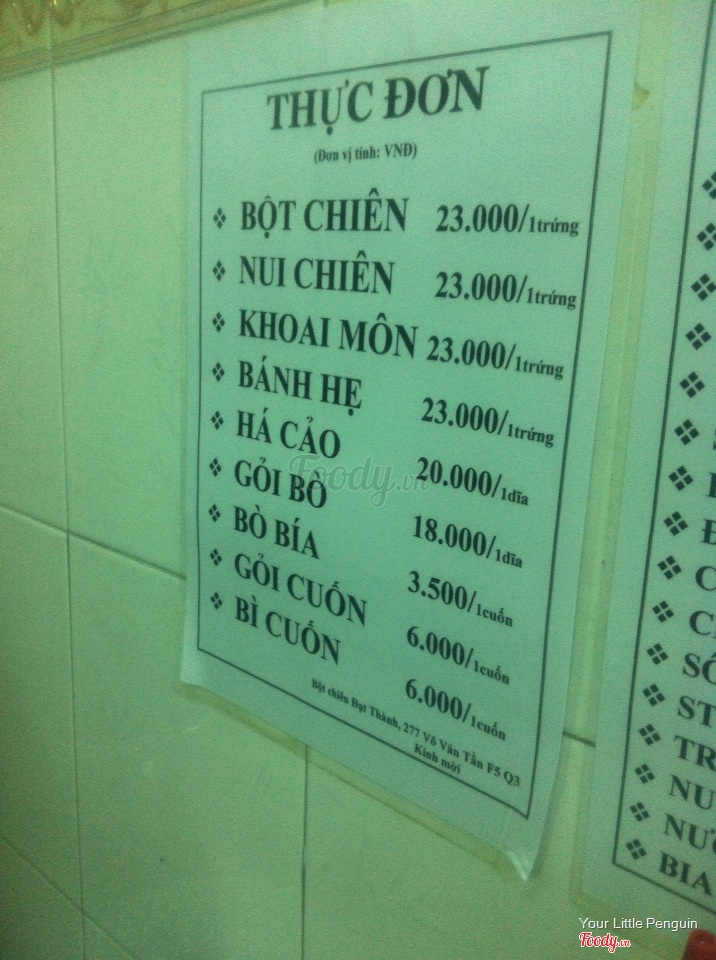 THỰC ĐƠN
(Đơn vị tính: VNĐ)
❖ BỘT CHIÊN 23.000/1trứng
❖ NUI CHIÊN 23.000/1trứng
❖ KHOAI MÔN 23.000/1trứng
❖ BÁNH HẸ 23.000/1trứng
❖ HÁ CẢO 20.000/1dĩa
❖ GỎI BÒ 18.000/1dĩa
❖ BÒ BÍA 3.500/1cuốn
❖ GỎI CUỐN 6.000/1cuốn
❖ BÌ CUỐN 6.000/1cuốn
Bột chiên Đạt Thành, 277 Võ Văn Tần F5 Q3
Kính mời
Foody.vn
TR
NU
BIA
Your Little Penguin
Foody.vn